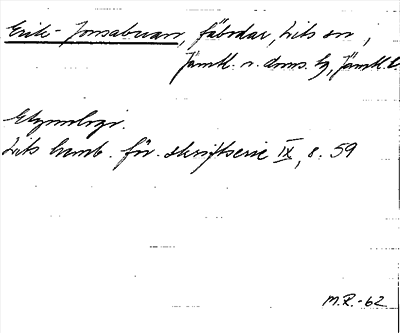 Erik-Jonsabuan, fäbodar, Lits sn,
Jämtl. n. doms. tg, Jämtl. l.
Etymologi.
Lits hemb. för. skriftserie IX, s. 59
M.R.-62